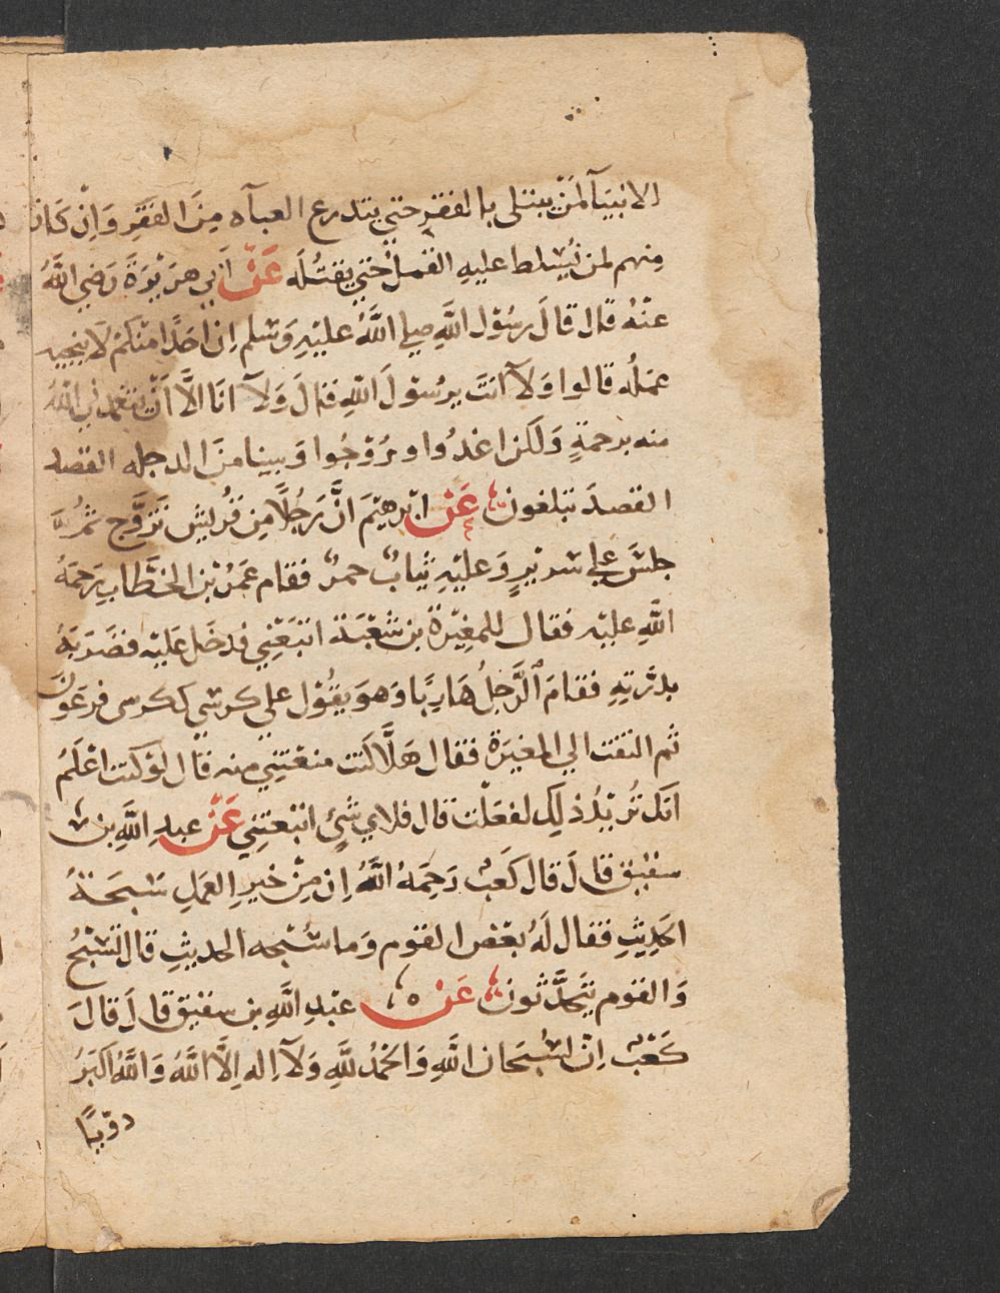 الانبيآ لمَنْ يبتلى بالفقر حتي يتدرع العبآه مِنَ الفَقْرِ وَاِنْ كَانَ
منهم لمن يُسلط عليهِ القمل حتي يقتُله عَنْ اَبي هرَيْرَةَ رَضي اللَّهُ
عنْهُ قال قالَ رسُوْل اللَّهِ صلي اللَّهُ عليْهِ وَسَلم اِن احَدًا منْكمْ لَا ينجيه
عمَلُه قالوا وَلآ انتَ يرسُوْلَ اللهِ فقالَ وَلآ انَا الاَّ اَنْ يتغمدني اللهُ
منه برحمةٍ وَلكن اغدُوا وروْحُوا وَسيا منَ الدجله القصد
القصدَ تبلغون عَنْ ابْرهيْمَ انَّ رَجُلًا مِن قُريش تزَوَّج ثمُ
جلسَ علي سريْرٍ وَعليْهِ ثيابٌ حمرٌ فقام عمَرُ بْن الخطَّابِ رَحمَةُ
اللَّهِ عليْه فقال للمغِيْرَةَ بن شعْبَة اتبَعْنِي فدخَل عَليْه فضَرَبَهُ
بدرّتِهِ فقامَ الرَّجلُ هَارِبًا وَهوَ يقُوْل علي كرسي ككرسى فرعَوْنَ
ثم التفت الي المغيَرةَ فقال هَلَّا كنت منعْتنِي منه قال لوْ كنت اعْلَمُ
انك تُريْدُ ذلِك لفعَلْت قال فلاي شَيْ اتبعْتنِي عَنْ عبدِ اللَّهِ بن ش
سقيْق قالَ قال كعَبٌ رَحِمَهُ اللَّهُ اِن مِنْ خَيرِ العمَلِ سَبحَةُ
الحَدِيثِ فقال لَهُ بعْض القوم وَما سُبْحه الحديثِ قال تسَبْحُ
وَالقوم يتحَدَّثون عَنْ عبْدِ اللَّهِ بن سقيْق قالَ قالَ
كعْبٌ اِنْ لسُبْحَان اللَّهِ وَالحَمْدُ للَّهِ وَلآ اِله اِلاَّ اللَّهُ وَاللَّهُ اكبَرُ
دوِيًّا